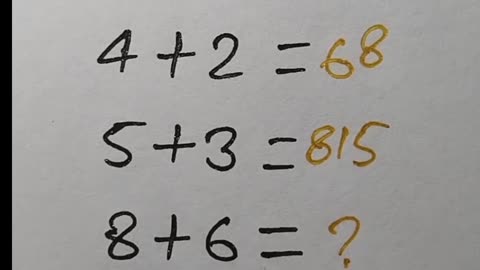 4+2=68
5+3=815
8+6=?